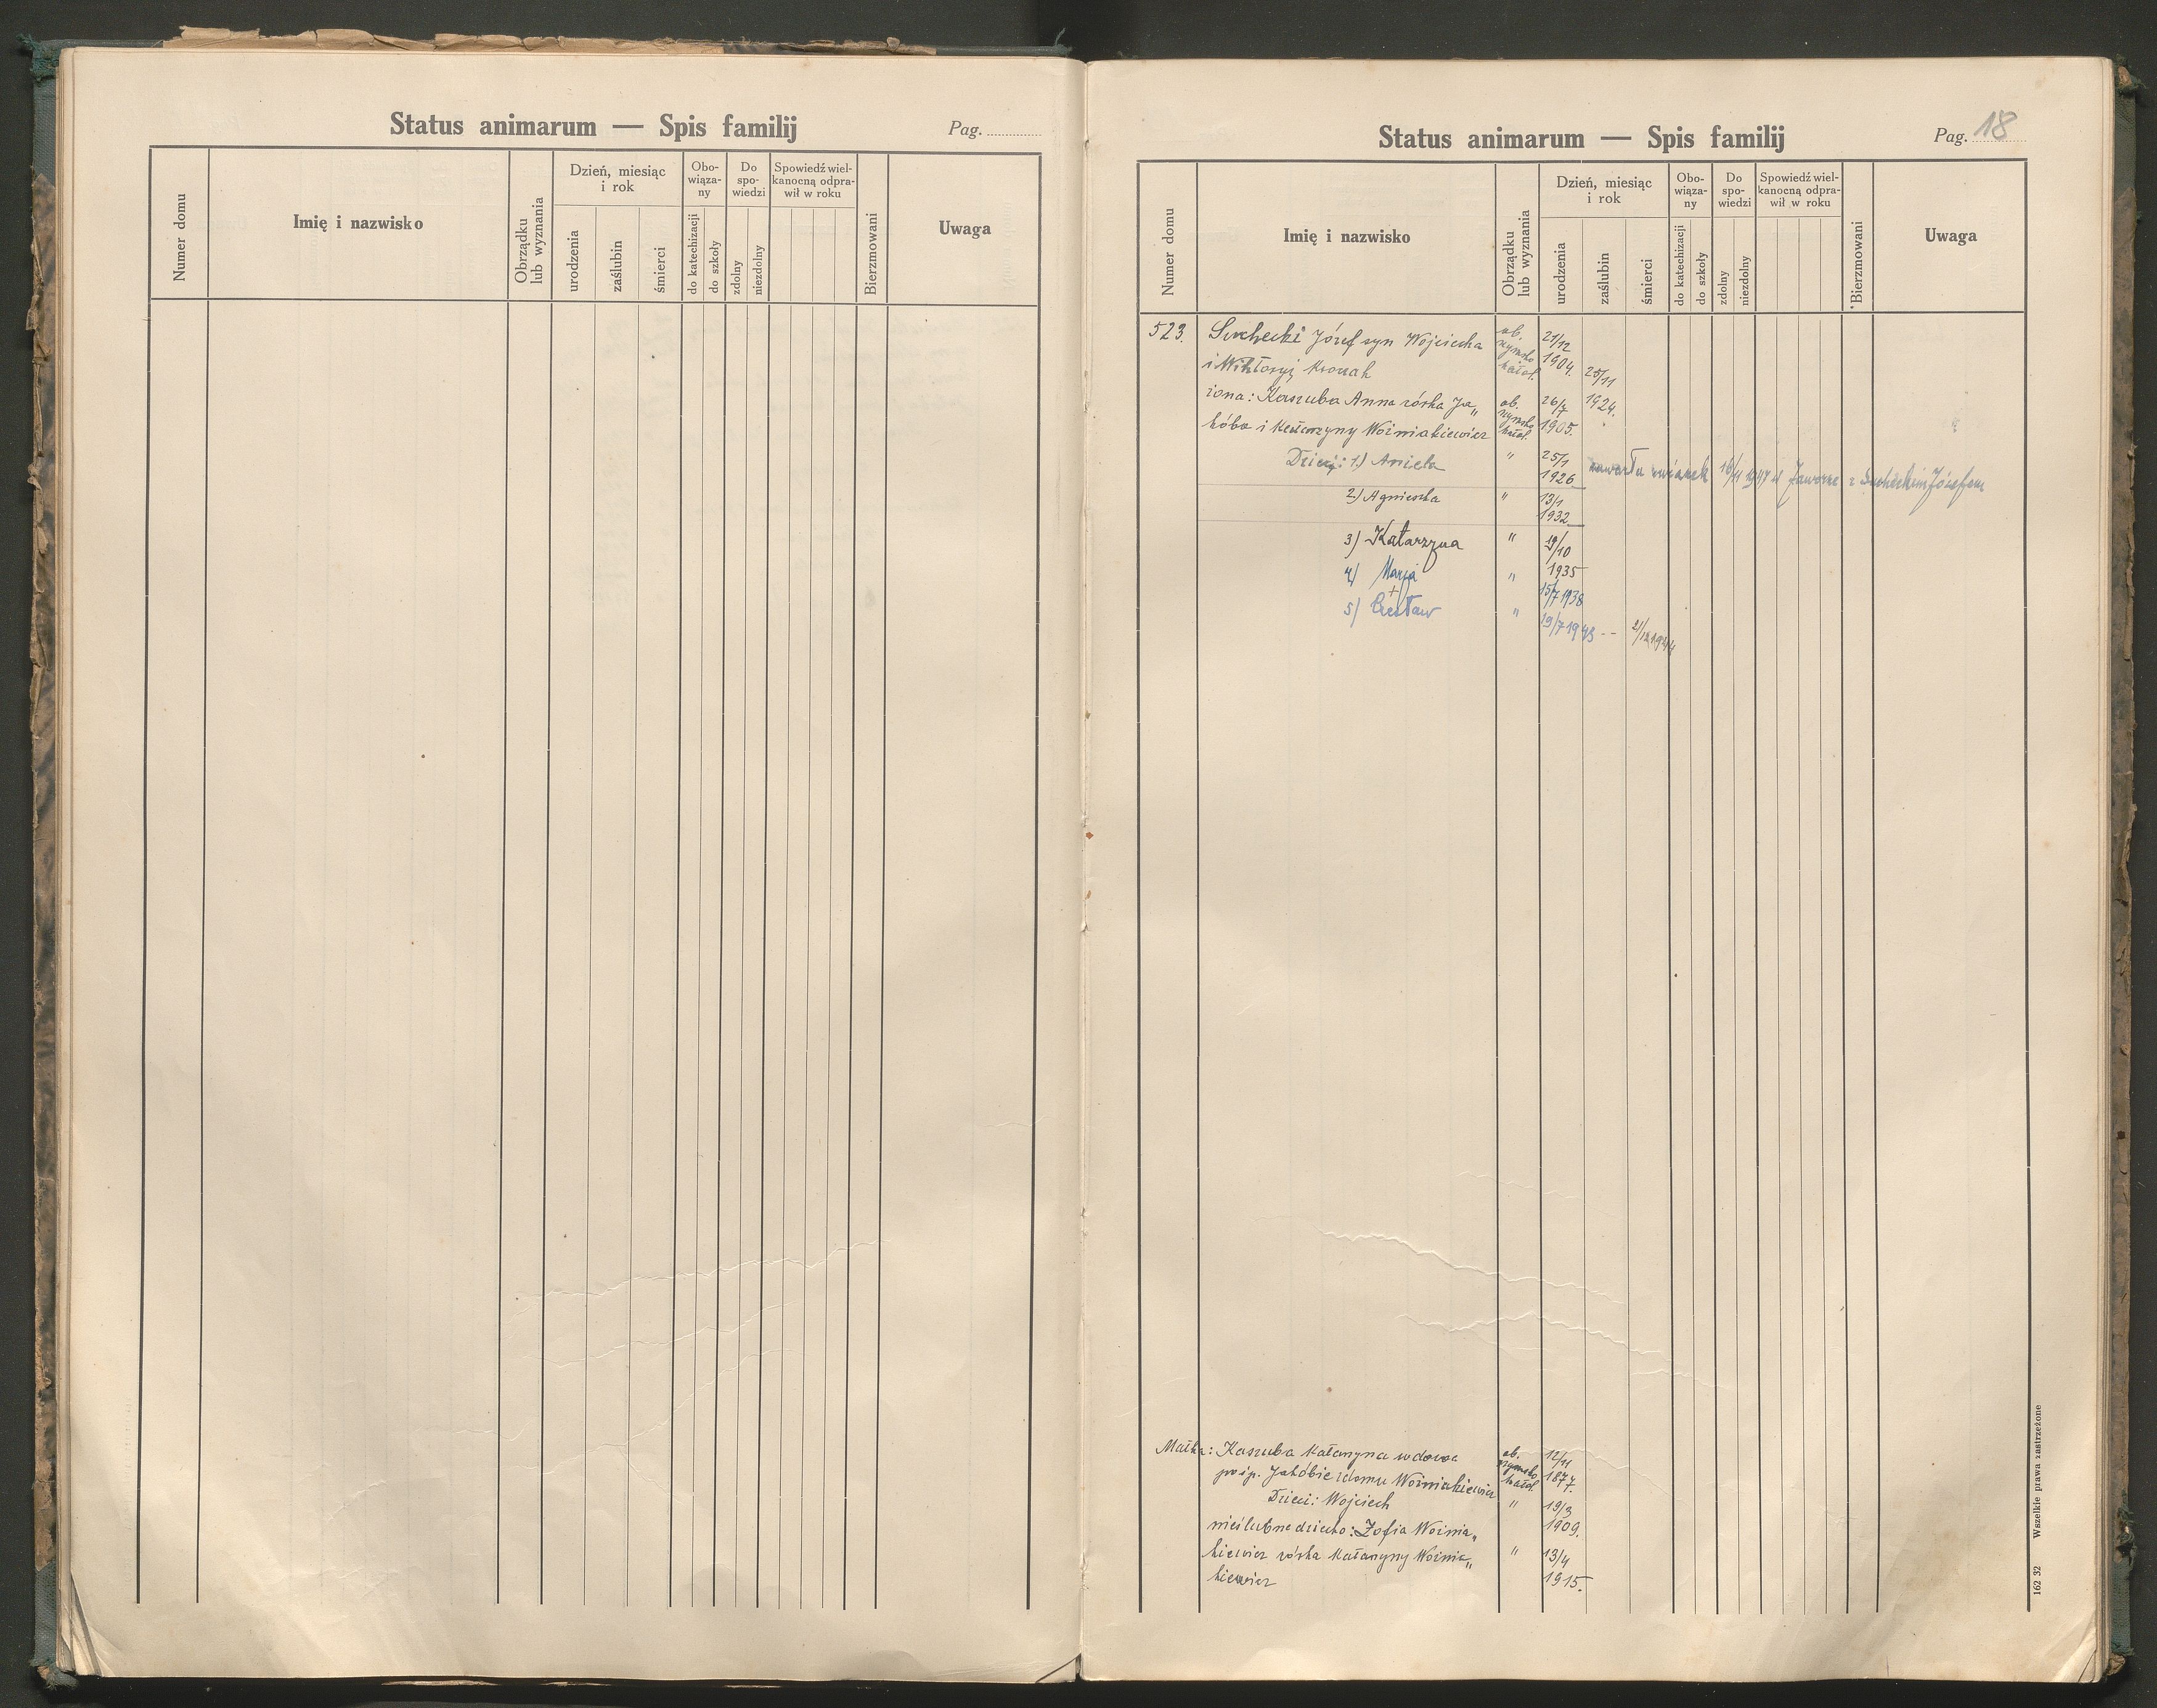 Status animarum — Spis familij
Pag.
Numer domu
Imię i nazwisko
Obrządku lub wyznania
Dzień, miesiąc i rok
urodzenia
zaślubin
śmierci
Obo-wiąza-ny
do katechizacji
do szkoły
Do spo-wiedzi
zdolny
niezdolny
Spowiedź wiel-kanocną odpra-wił w roku
Bierzmowani
Uwaga
Status animarum — Spis familij
Pag. 18
Numer domu
Imię i nazwisko
Obrządku lub wyznania
Dzień, miesiąc i rok
urodzenia
zaślubin
śmierci
Obo-wiąza-ny
do katechizacji
do szkoły
Do spo-wiedzi
zdolny
niezdolny
Spowiedź wiel-kanocną odpra-wił w roku
Bierzmowani
Uwaga
523. Suchecki Józef syn Wojciecha ob. rzymsko katol. 21/12 1904.
i Wiktoryi 25/11 1924.
żona: Kaszuba Anna córka Ja„ ob. rzymsko katol. 26/7 1905.
kóba i Katarzyny Woźniakiewicz
Dzieci: 1.) Aniela " 25/1 1926. zawarła związek 16/11 1947 w Jaworze z Sucheckim Józefem
2.) Agnieszka " 13/1 1932
3) Katarzyna " 19/10 1935
4) Marja " 15/7 1938
5) Czesław + " 19/7 1943 -- 21/12 1944
Matka: Kaszuba Katarzyna wdowa ob. rzymsko katol. 12/11 1877.
po śp. Jakóbie z domu Woźniakiewicz
Dzieci: Wojciech " 19/3 1909.
nieślubne dziecko: Zofia Woźnia„
kiewicz córka Katarzyny Woźnia„ " 13/4 1915.
kiewicz
162 32 Wszelkie prawa zastrzeżone